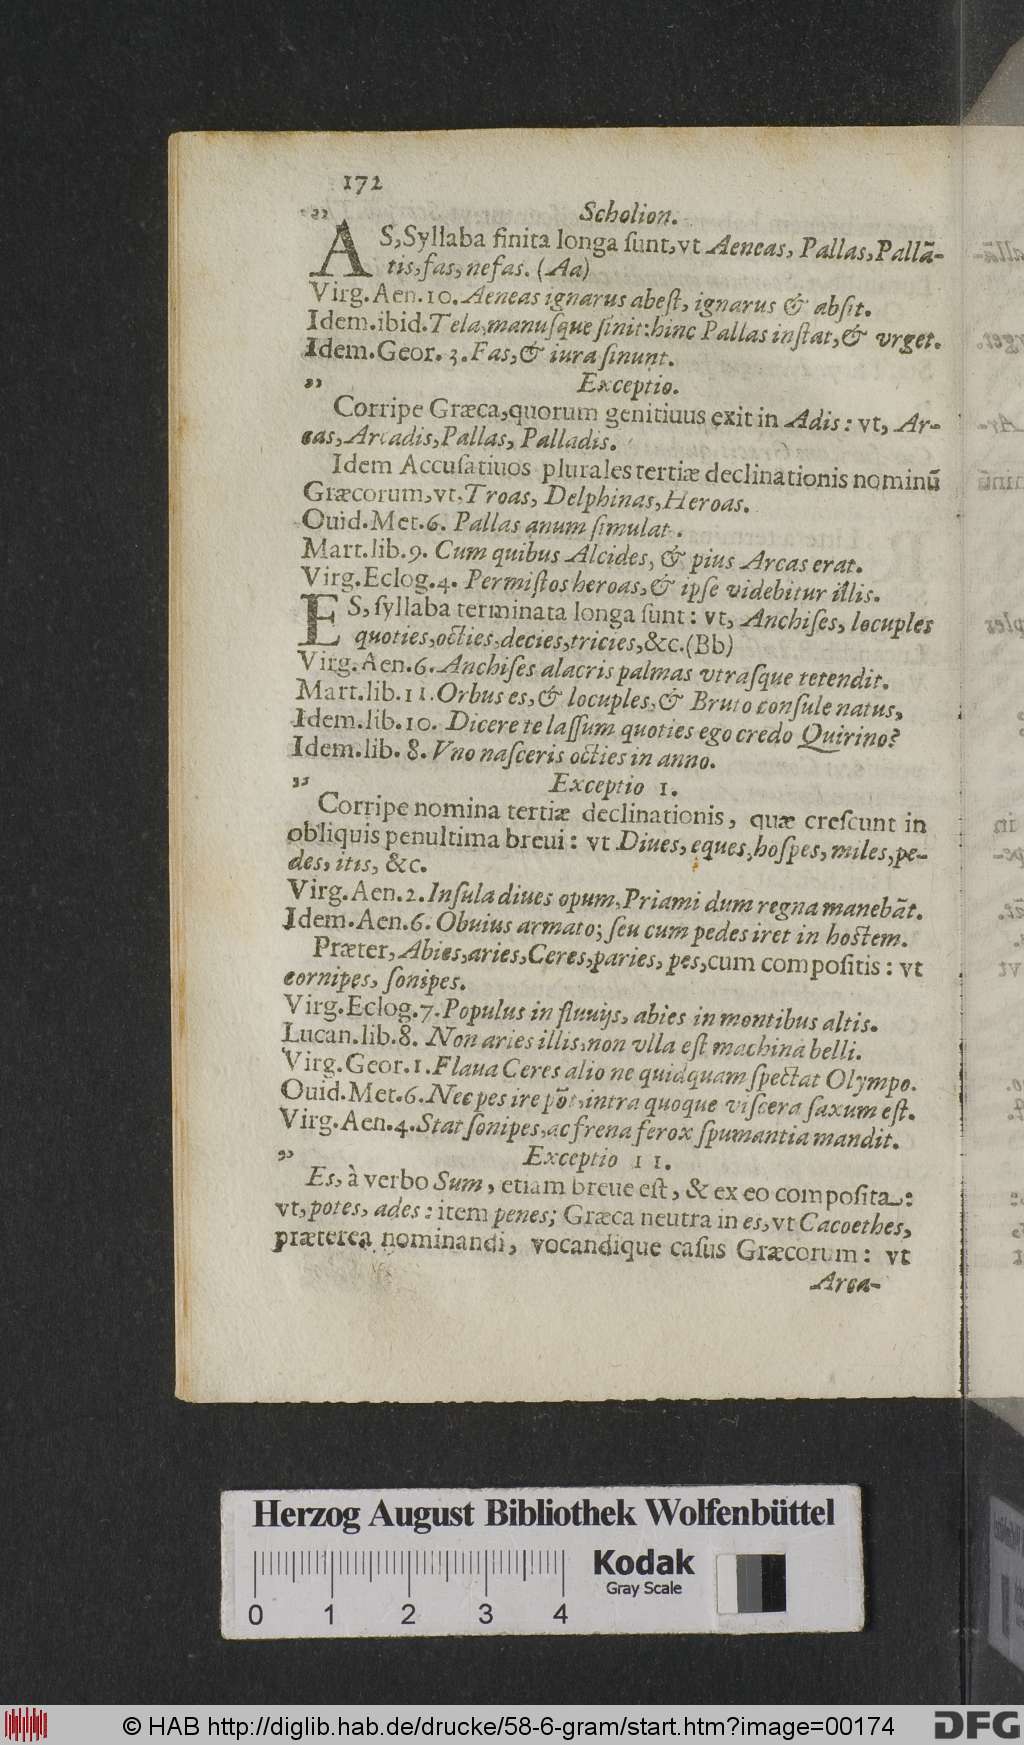 172
„ Scholion.
AS, Syllaba finita longa ſunt, vt Aeneas, Pallas, Pallā-
tis, fas, nefas. (Aa)
Virg. Aen. 10. Aeneas ignarus abeſt, ignarus & abſit.
Idem. ibid. Tela, manuſque ſinit: hinc Pallas inſtat, & vrget.
Idem. Geor. 3. Fas, & iura ſinunt.
„ Exceptio.
Corripe Græca, quorum genitiuus exit in Adis: vt, Ar-
cas, Arcadis, Pallas, Palladis.
Idem Accuſatiuos plurales tertiæ declinationis nominū
Græcorum, vt, Troas, Delphinas, Heroas.
Ouid. Met. 6. Pallas anum ſimulat.
Mart. lib. 9. Cum quibus Alcides, & pius Arcas erat.
Virg. Eclog. 4. Permiſtos heroas, & ipſe videbitur illis.
ES, ſyllaba terminata longa ſunt: vt, Anchiſes, locuples
quoties, octies, decies, tricies, &c. (Bb)
Virg. Aen. 6. Anchiſes alacris palmas vtraſque tetendit.
Mart. lib. 11. Orbus es, & locuples, & Bruto conſule natus,
Idem. lib. 10. Dicere te laſſum quoties ego credo Quirino?
Idem. lib. 8. Vno naſceris octies in anno.
„ Exceptio 1.
Corripe nomina tertiæ declinationis, quæ creſcunt in
obliquis penultima breui: vt Diues, eques, hoſpes, miles, pe-
des, itis, &c.
Virg. Aen. 2. Inſula diues opum, Priami dum regna manebāt.
Idem. Aen. 6. Obuius armato; ſeu cum pedes iret in hostem.
Præter, Abies, aries, Ceres, paries, pes, cum compoſitis: vt
cornipes, ſonipes.
Virg. Eclog. 7. Populus in fluuijs, abies in montibus altis.
Lucan. lib. 8. Non aries illis, non vlla eſt machina belli.
Virg. Geor. 1. Flaua Ceres alio ne quidquam ſpectat Olympo.
Ouid. Met. 6. Nec pes ire pōt, intra quoque viſcera ſaxum eſt.
Virg. Aen. 4. Stat ſonipes, ac frena ferox ſpumantia mandit.
„ Exceptio 11.
Es, à verbo Sum, etiam breue eſt, & ex eo compoſita:
vt, potes, ades: item penes; Græca neutra in es, vt Cacoethes,
præterea nominandi, vocandique caſus Græcorum: vt
Arca-
Herzog August Bibliothek Wolfenbüttel
Kodak
Gray Scale
0 1 2 3 4
© HAB http://diglib.hab.de/drucke/58-6-gram/start.htm?image=00174
DFG